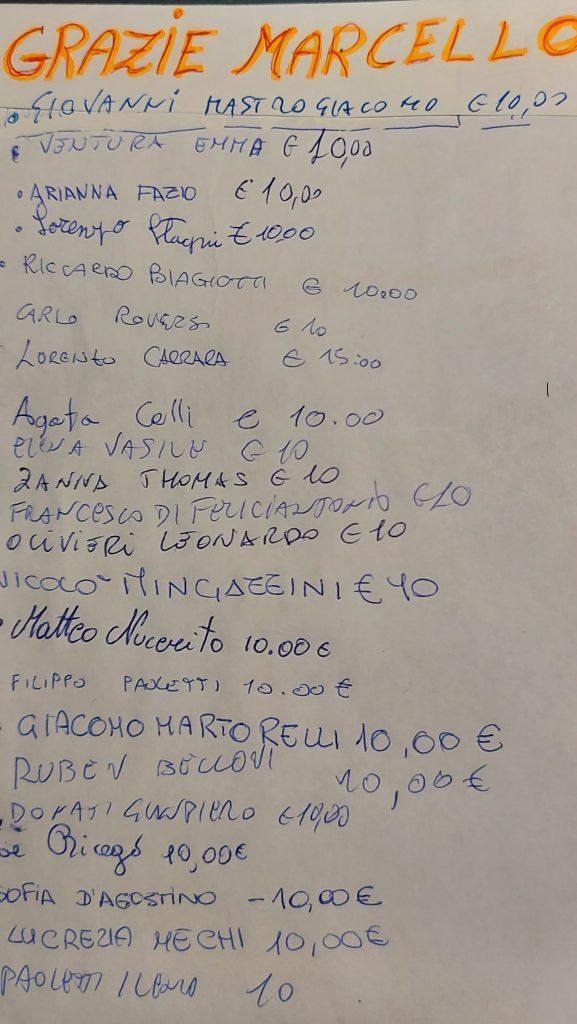 GRAZIE MARCELLO
• GIOVANNI MASTROGIACOMO € 10,00
• VENTURA EMMA € 10,00
• ARIANNA FAZIO € 10,00
• Lorenzo Stagni € 10,00
• RICCARDO BIAGIOTTI € 10.00
CARLO ROVERSI € 10
LORENZO CARRARA € 15.00
Agata Celli € 10.00
VASILE € 10
ZANNA THOMAS € 10
FRANCESCO DI FELICIANTONIO € 10
OLIVIERI LEONARDO € 10
NICOLÒ MINGAZZINI € 10
• Matteo Nucerito 10.00€
FILIPPO PAOLETTI 10.00€
GIACOMO MARTORELLI 10,00€
RUBEN BELLOVI 10,00€
DONATI GIANPIERO € 10,00
10,00€
SOFIA D'AGOSTINO - 10,00€
LUCREZIA MECHI 10,00€
PAOLETTI ILENIA 10